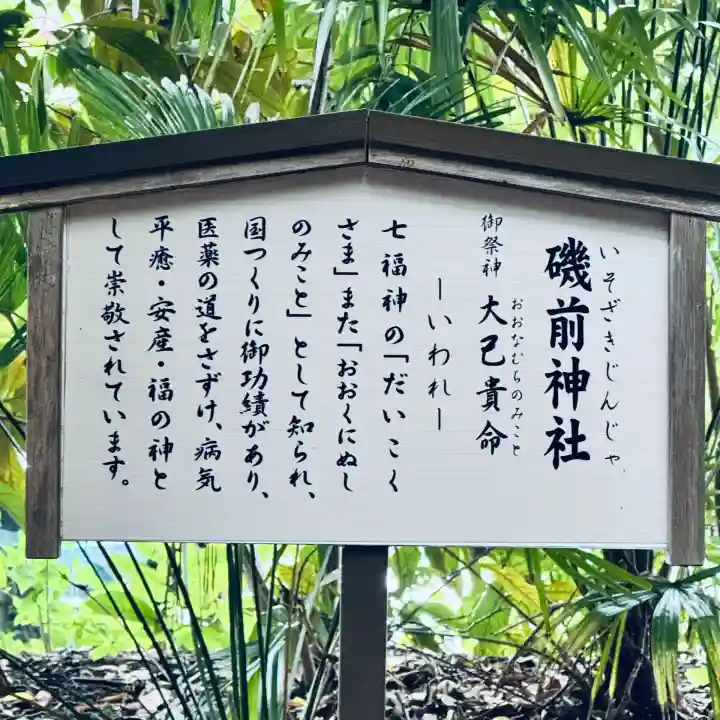 いそざきじんじゃ
磯前神社
おおなむちのみこと
御祭神 大己貴命
ーいわれー
七福神の「だいこく
さま」また「おおくにぬし
のみこと」として知られ、
国つくりに御功績があり、
医薬の道をさずけ、病気
平癒・安産・福の神と
して崇敬されています。